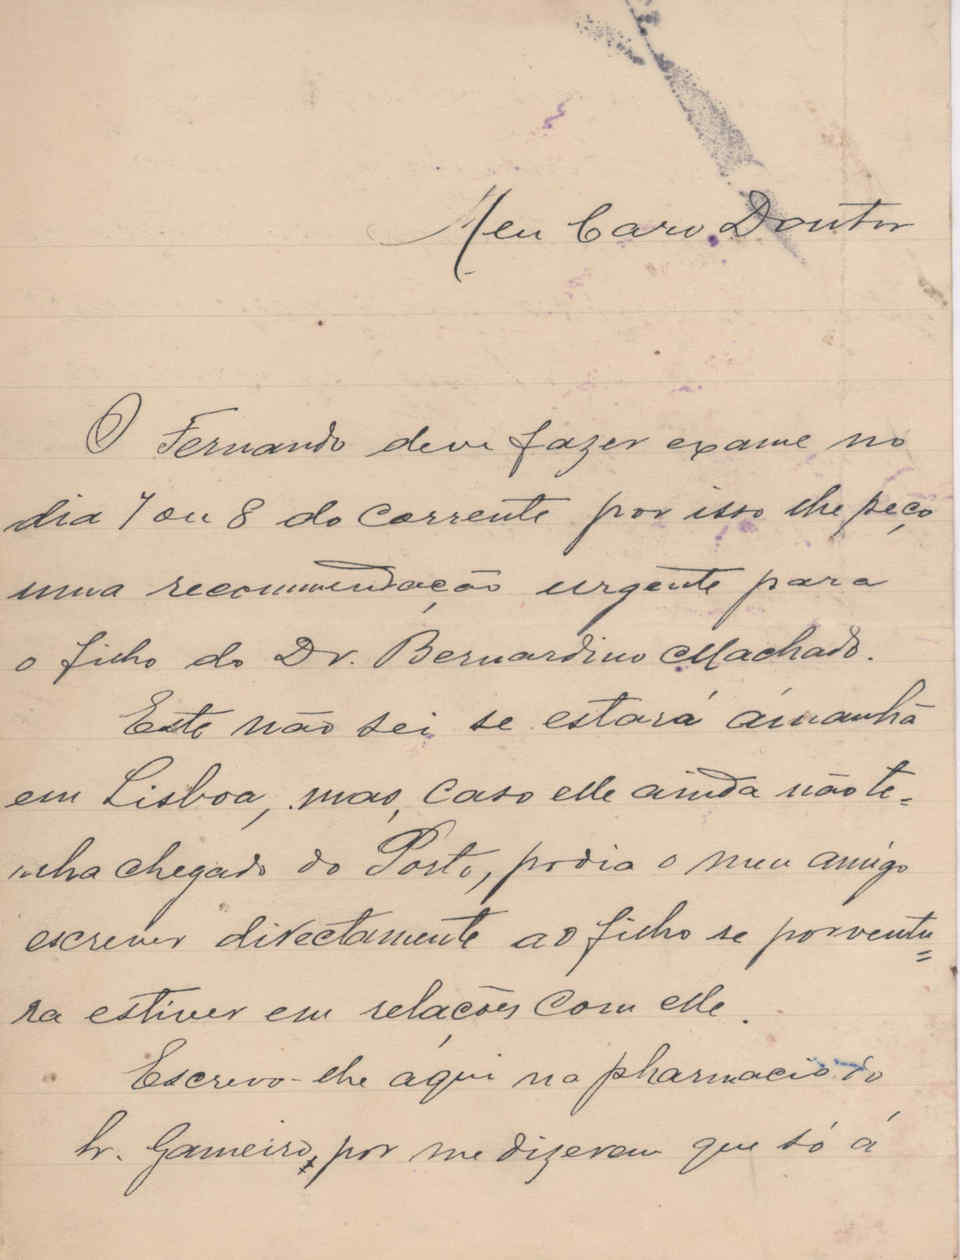 Meu Caro Doutor
O Fernando deve fazer exame no
dia 7 ou 8 do corrente por isso lhe peço
uma recommendação urgente para
o filho do Dr. Bernardino Machado.
Este não sei se estará ámanhã
em Lisboa, mas, caso elle ainda não te=
nha chegado do Porto, podia o meu amigo
escrever directamente ao filho se porventu=
ra estiver em relações com elle.
Escrevo-lhe aqui na pharmacia do
Sr. Gameiro, por me dizerem que só á